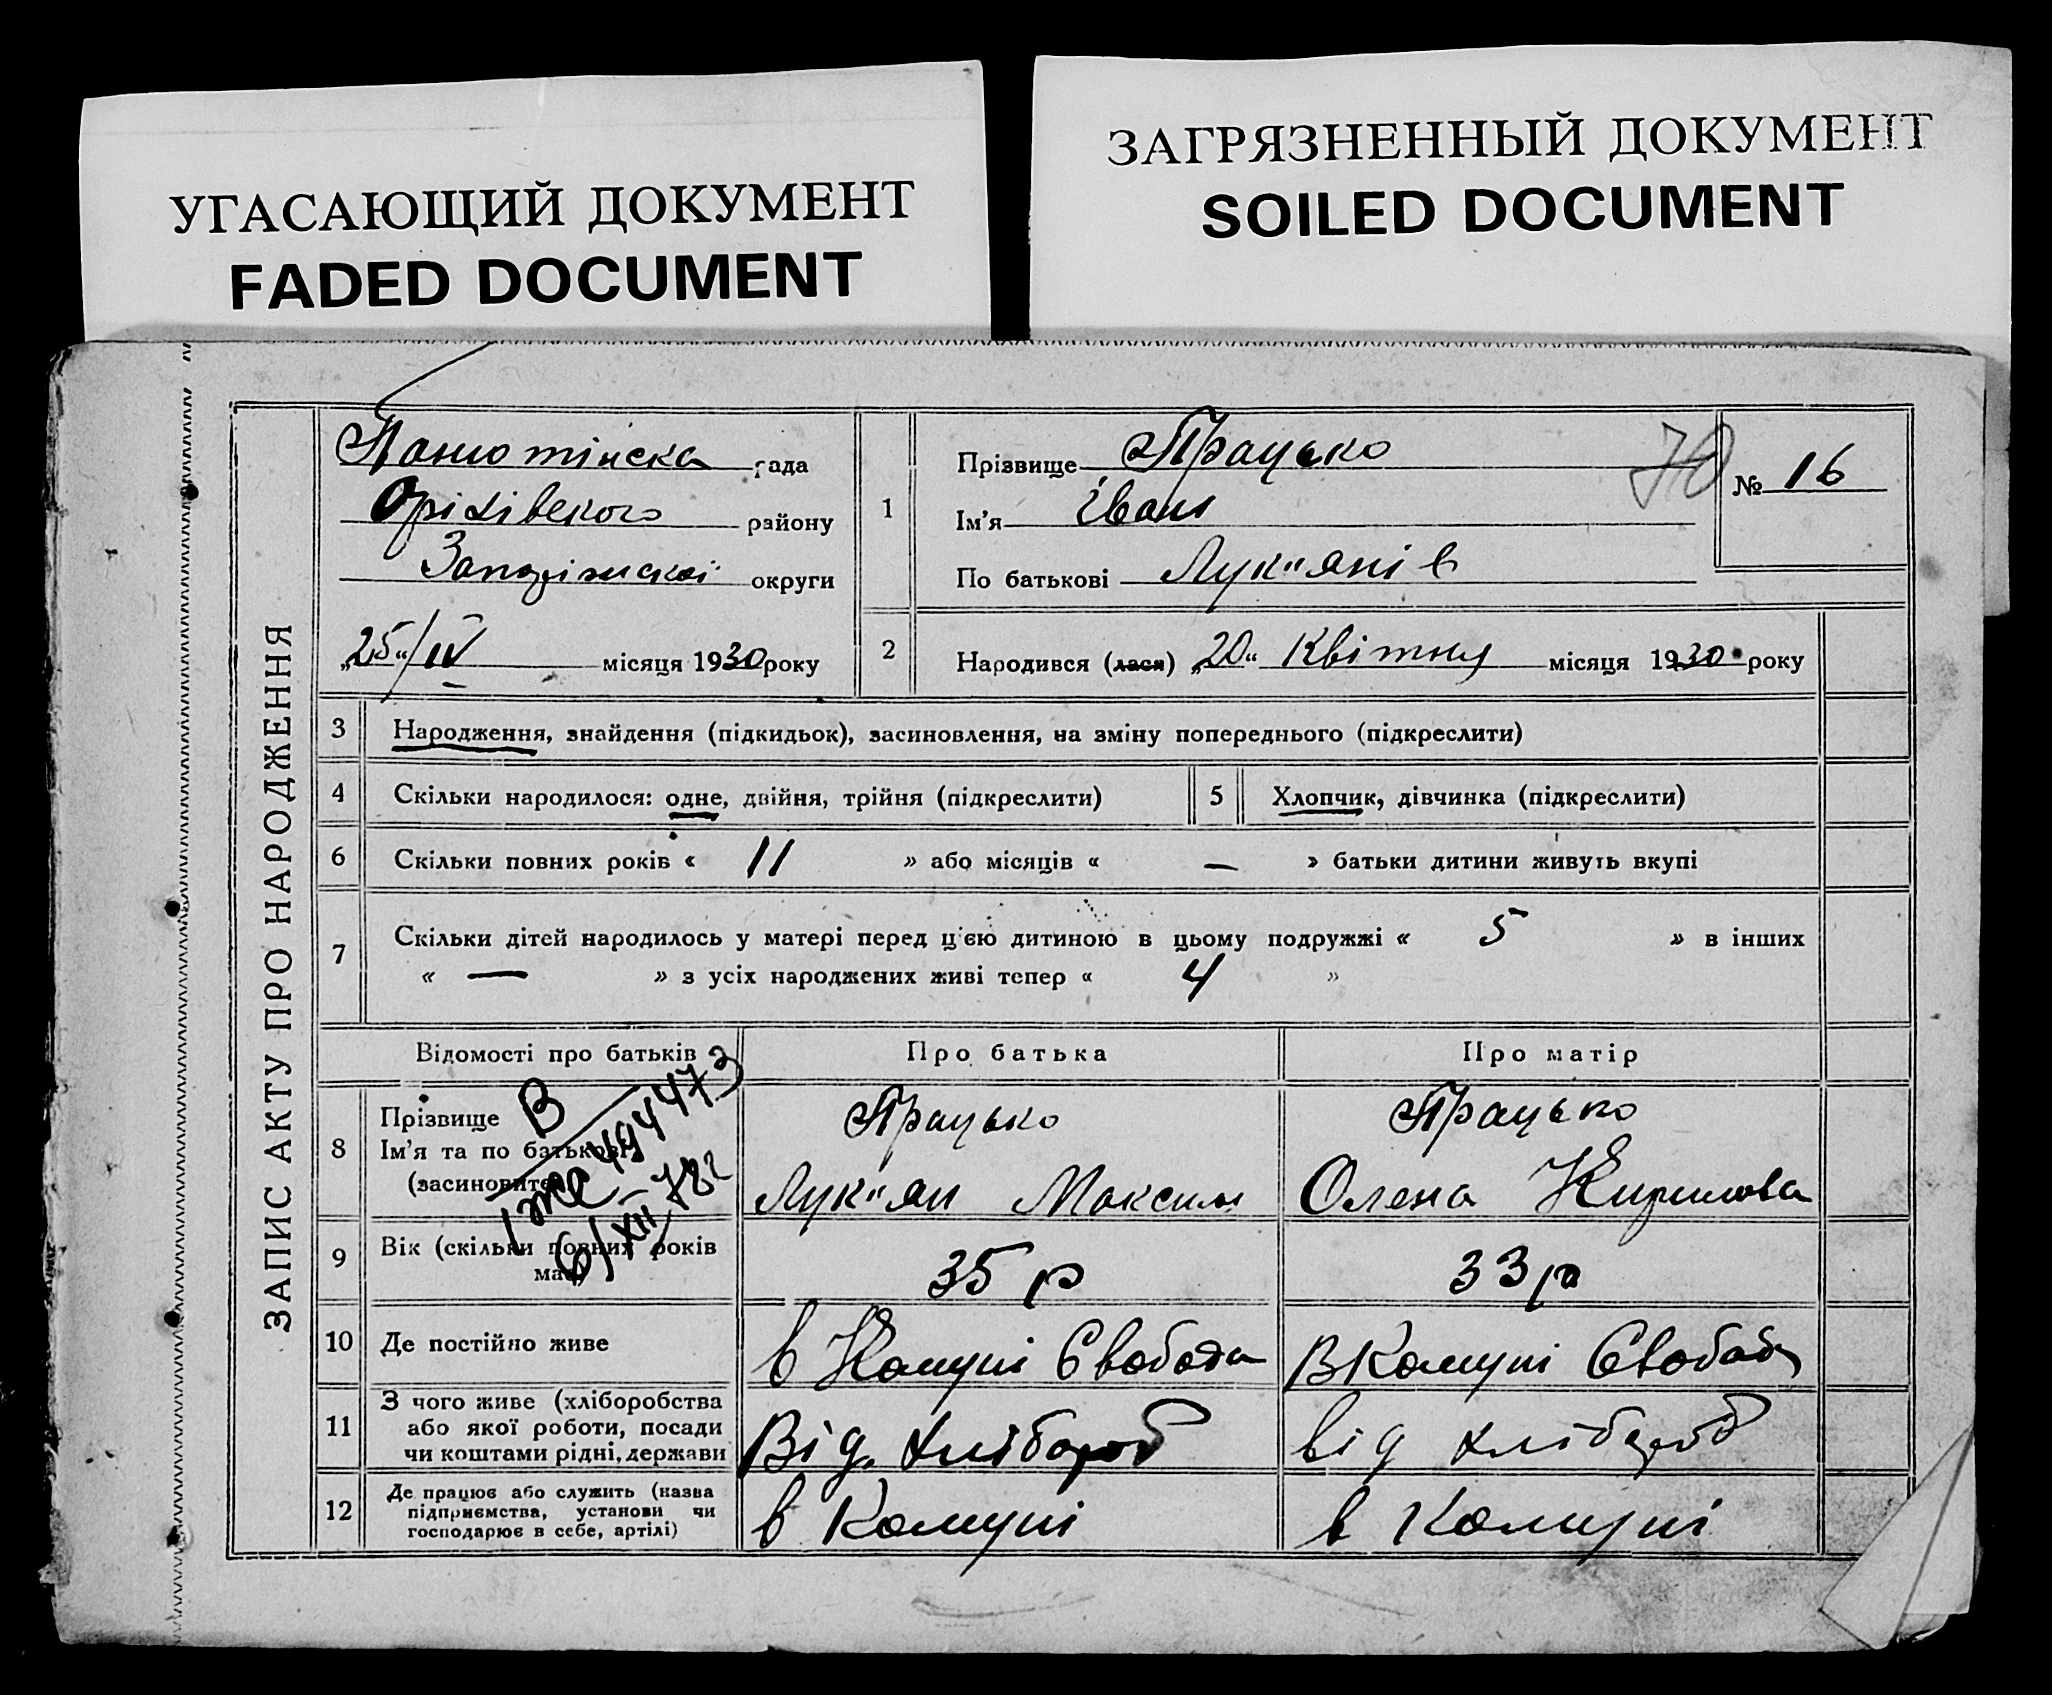 УГАСАЮЩИЙ ДОКУМЕНТ
FADED DOCUMENT
ЗАГРЯЗНЕННЫЙ ДОКУМЕНТ
SOILED DOCUMENT
ЗАПИС АКТУ ПРО НАРОДЖЕННЯ
Панютінска рада
Оріхівского району
Запоріжскої округи
„25“/IV місяця 1930 року
1
Прізвище Працько
Ім'я Іван
По батькові Лук"янів
70
№ 16
2
Народився (лася) „20“ Квітня місяця 1930 року
3 Народження, знайдення (підкидьок), засиновлення, на зміну попереднього (підкреслити)
4 Скільки народилося: одне, двійня, трійня (підкреслити)
5 Хлопчик, дівчинка (підкреслити)
6 Скільки повних років « 11 » або місяців « — » батьки дитини живуть вкупі
7 Скільки дітей народилось у матері перед ц'єю дитиною в цьому подружжі « 5 » в інших
« — » з усіх народжених живі тепер « 4 »
Відомості про батьків Про батька Про матір
8 Прізвище
Ім'я та по батькові
(засиновител
Працько
Лук"ян Максим
Працько
Олена Кирилова
В
494473
6/XII-78г
9 Вік (скільки повних років
має)
35 р
33 р
10 Де постійно живе
в Комуні Свобода
В Комуні Свобода
11 З чого живе (хліборобства
або якої роботи, посади
чи коштами рідні, держави
Від. хлібороб
від хлібороб
12 Де працює або служить (назва
підприємства, установи чи
господарює в себе, артілі)
в Комуні
в Комуні